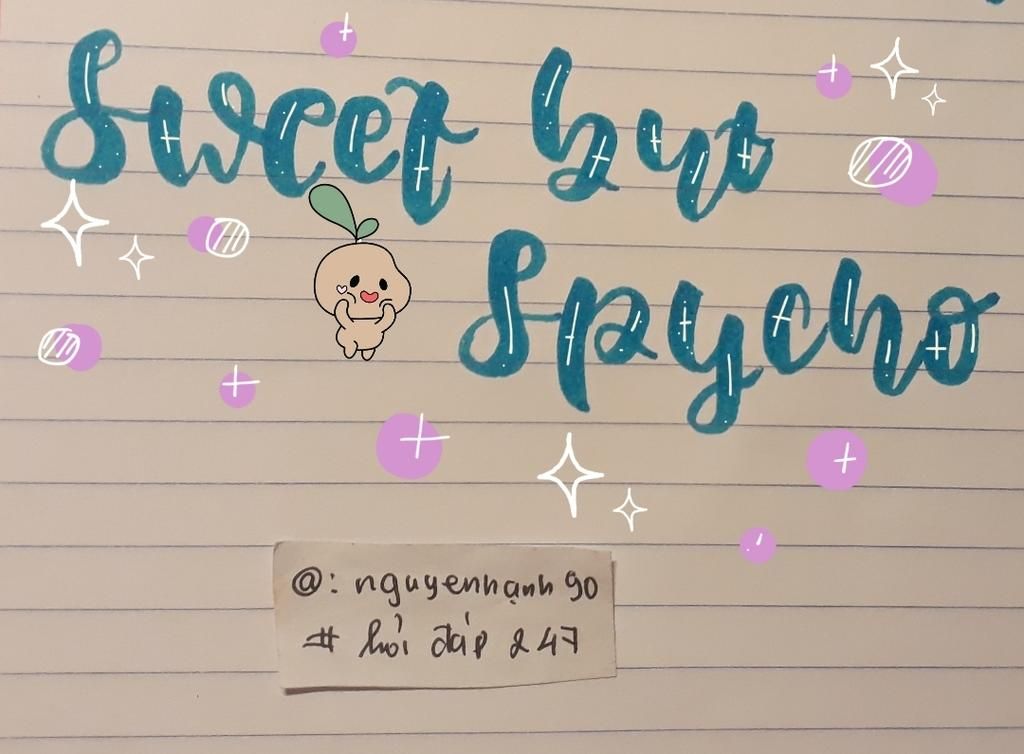 Sweet but
Spycho
@: nguyenhạnh90
# hỏi đáp 247